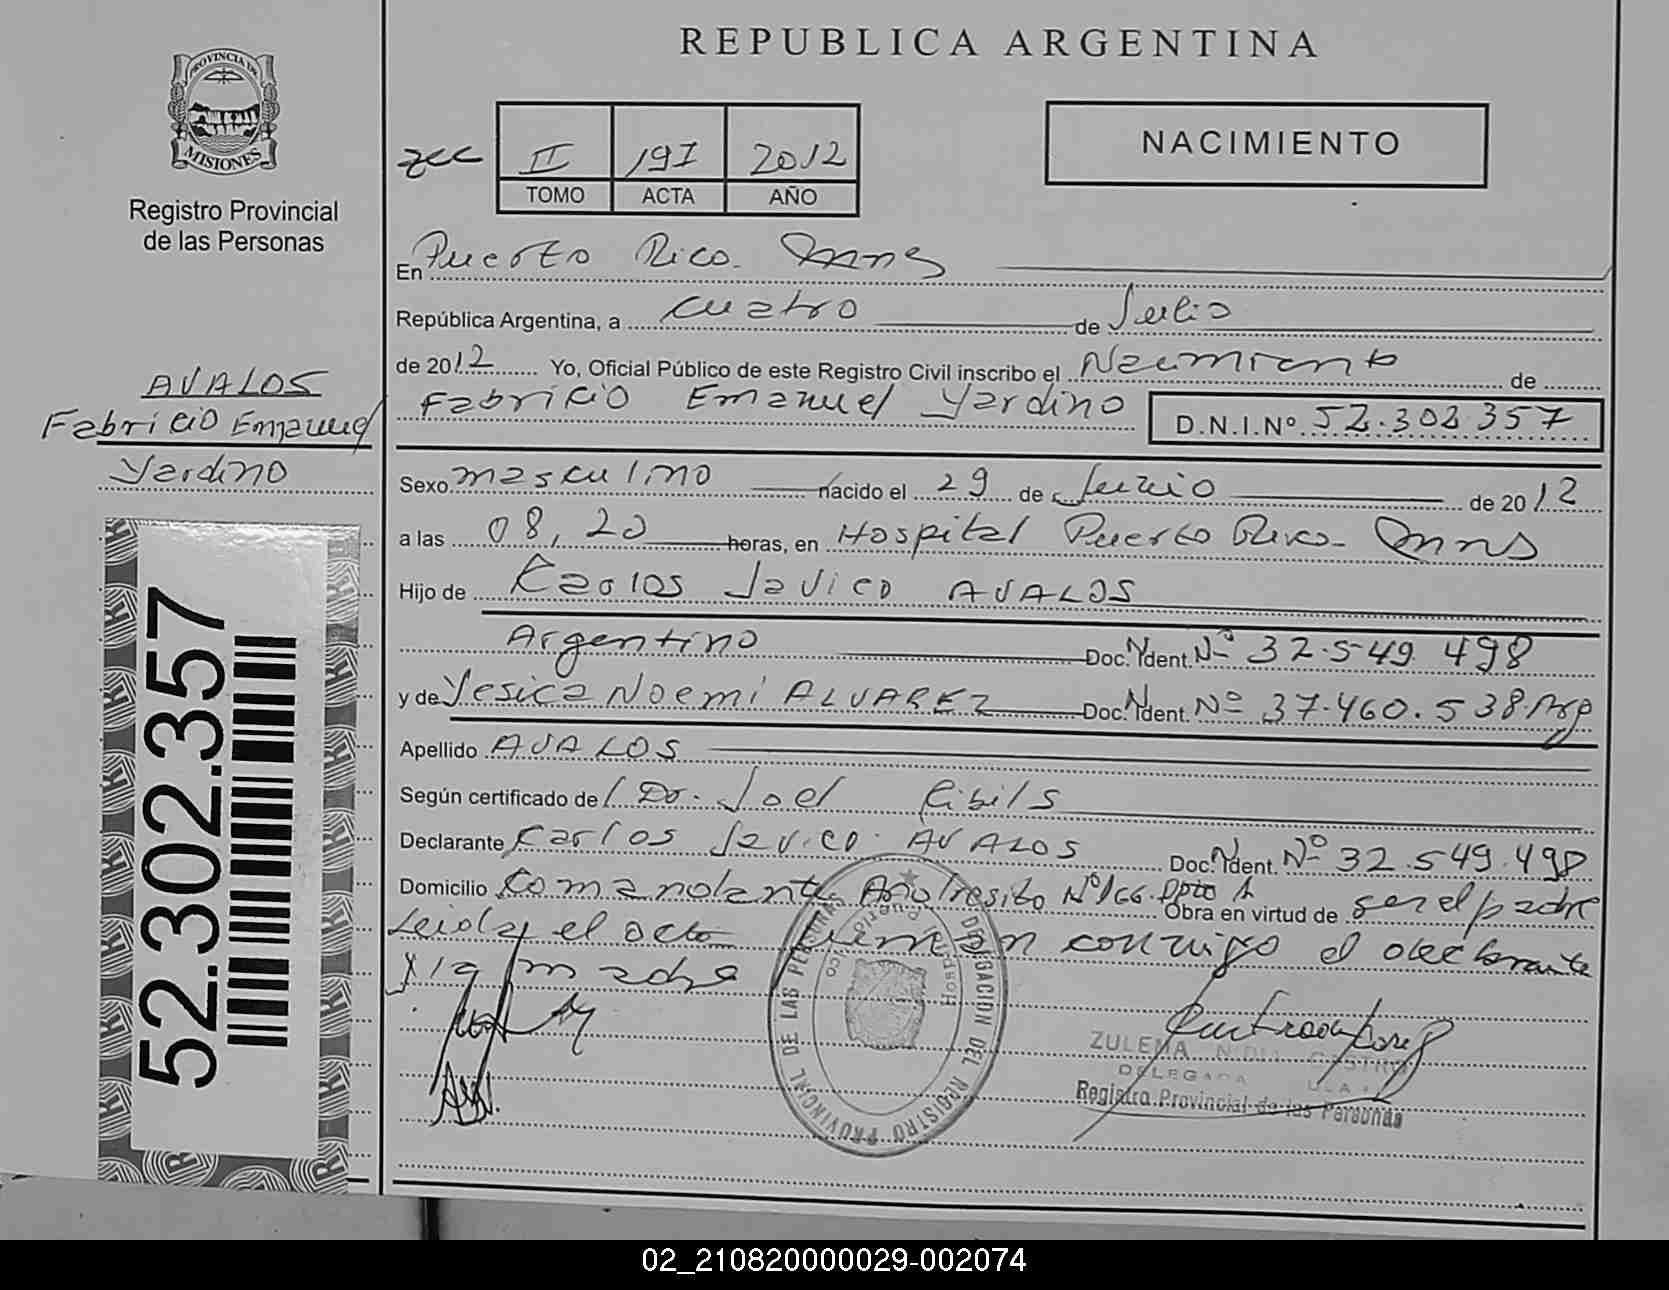 REPUBLICA ARGENTINA
PROVINCIA DE
MISIONES
Registro Provincial
de las Personas
II 191 2012
TOMO ACTA AÑO
NACIMIENTO
En Puerto Rico. Mnes
República Argentina, a cuatro de Julio
de 2012 Yo, Oficial Público de este Registro Civil inscribo el Nacimiento de
Fabricio Emanuel Yardino D.N.I.Nº 52.302.357
AVALOS
Fabricio Emanuel
Yardino
Sexo masculino nacido el 29 de Junio de 2012
a las 08,20 horas, en Hospital Puerto Rico. Mnes
Hijo de Carlos Javier AVALOS
Argentino Doc. Ident. Nº 32.549.498
y de Yesica Noemi ALVAREZ Doc. Ident. Nº 37.460.538 Arg
Apellido AVALOS
Según certificado del Dr. Joel Ribils
Declarante Carlos Javier AVALOS Doc. Ident. Nº 32.549.498
Domicilio Comandante Andresito Nº 166 Dpto 1 Obra en virtud de ser el padre
Leida el acta firman conmigo el declarante
y la madre
DELEGACION DEL REGISTRO PROVINCIAL DE LAS PERSONAS
Hospital Puerto Rico
ZULEMA CASTRO
DELEGADA
Registro Provincial de las Personas
52.302.357
02_210820000029-002074